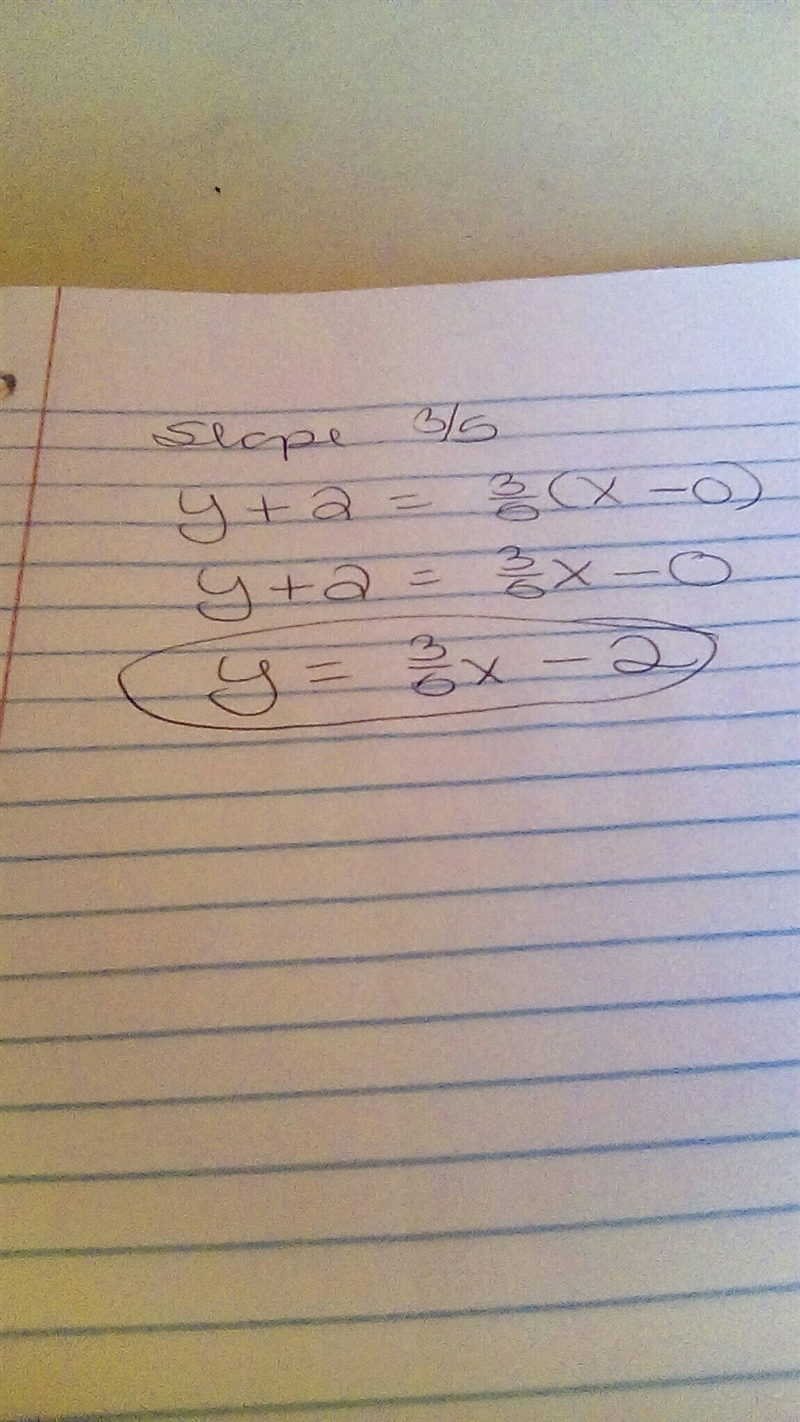 Slope 3/5
y + 2 = 3/6 (x - 0)
y + 2 = 3/6 x - 0
y = 3/6 x - 2